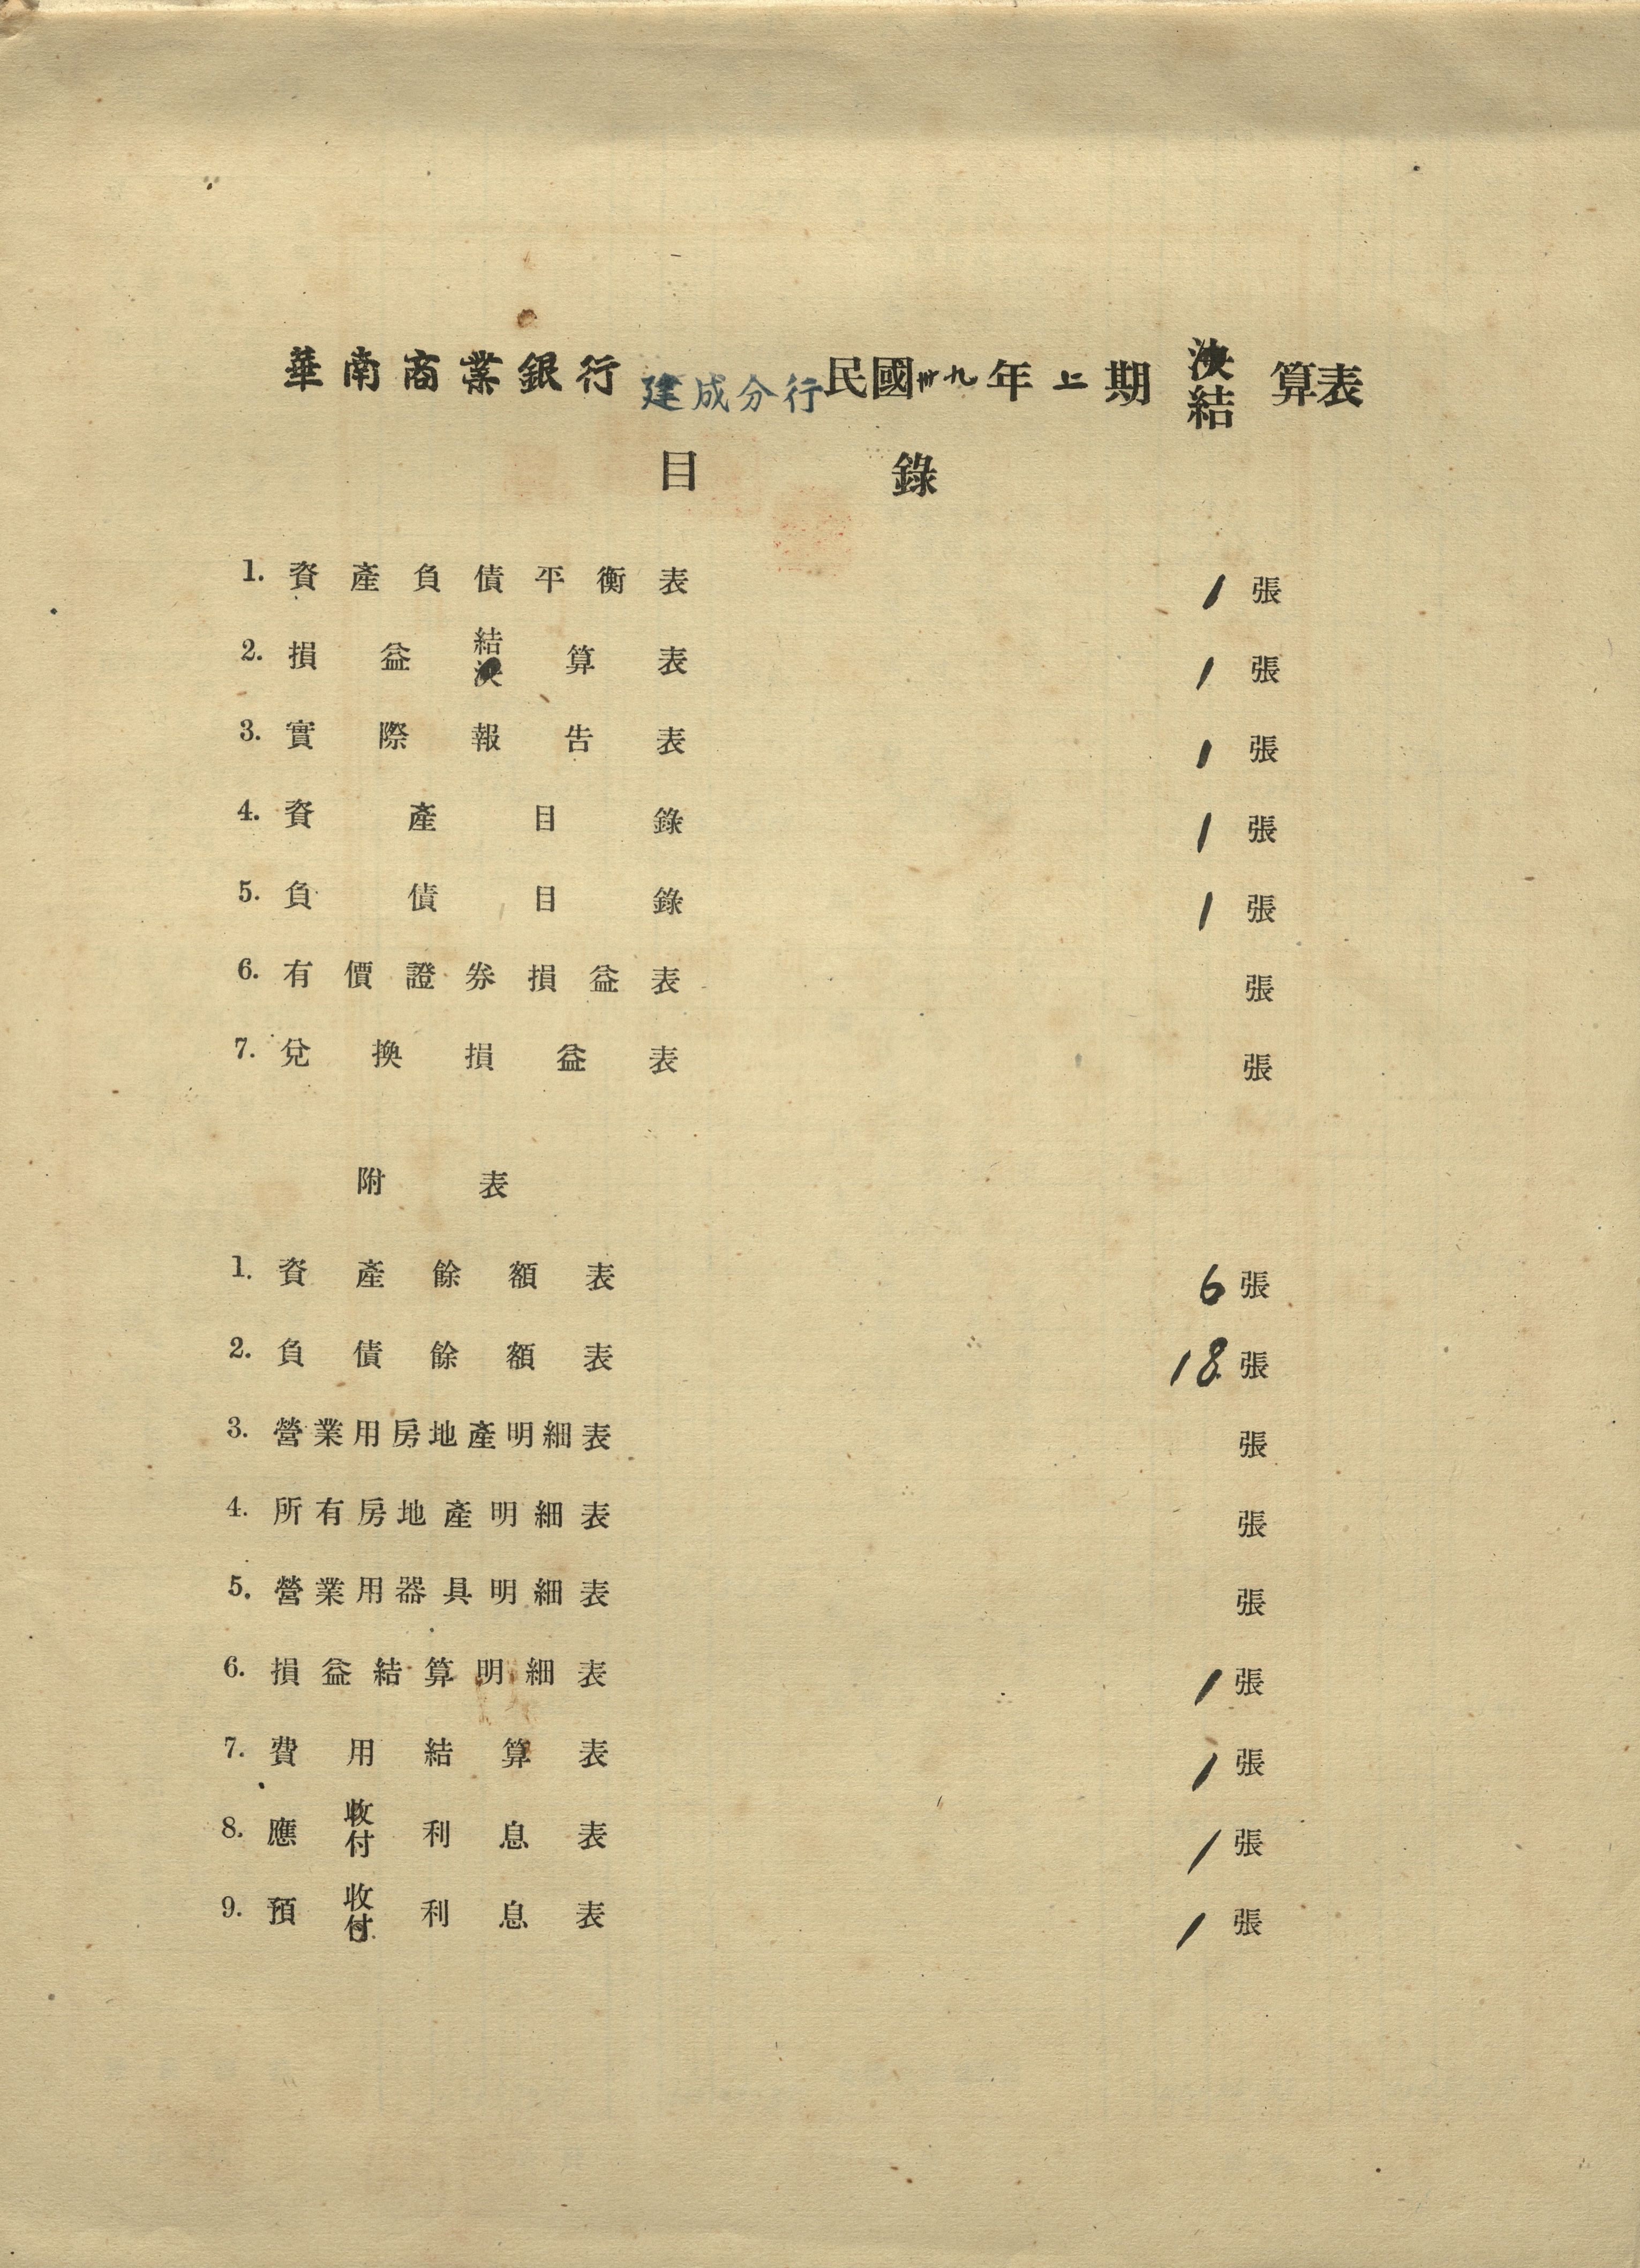 華南商業銀行建成分行民國卅九年上期決結算表
目錄
1. 資產負債平衡表 1張
2. 損益結決算表 1張
3. 實際報告表 1張
4. 資產目錄 1張
5. 負債目錄 1張
6. 有價證券損益表 張
7. 兌換損益表 張
附表
1. 資產餘額表 6張
2. 負債餘額表 18張
3. 營業用房地產明細表 張
4. 所有房地產明細表 張
5. 營業用器具明細表 張
6. 損益結算明細表 1張
7. 費用結算表 1張
8. 應收付利息表 1張
9. 預收付利息表 1張